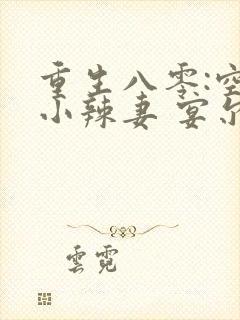 重生八零:空
小辣妻 宴尔
雲霓